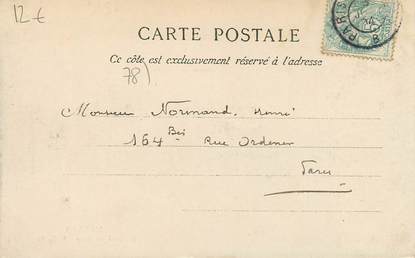 12 €
CARTE POSTALE
Ce côté est exclusivement réservé à l'adresse
78)
Monsieur Normand, Henri
164 Bis Rue Ordener
Paris
PARIS